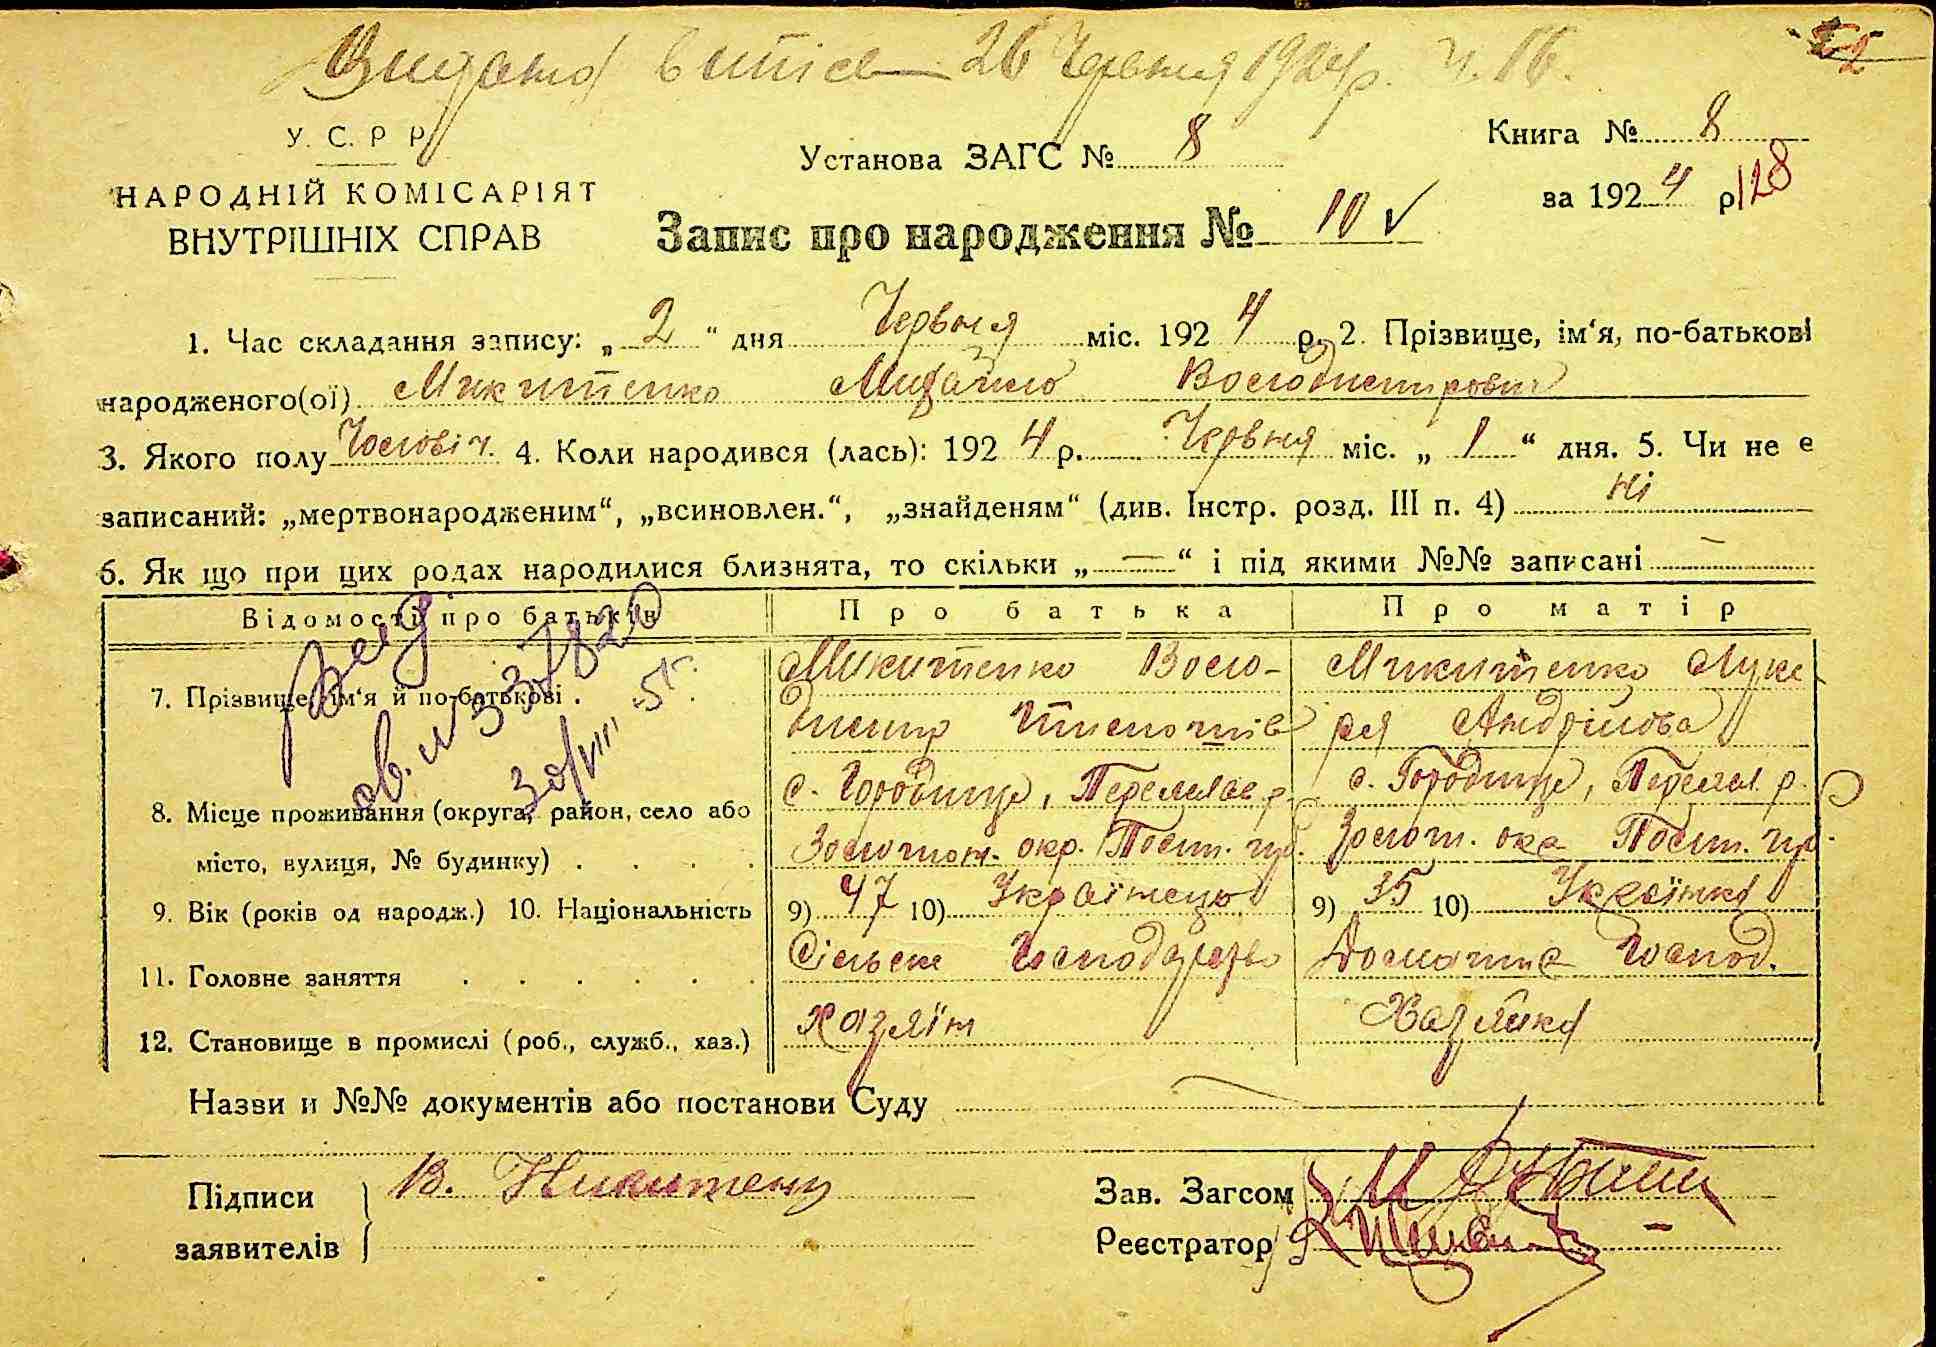 Видано витіс 26 Червня 1924 р. Ч. 16.
52
У. С. Р Р
НАРОДНІЙ КОМІСАРІЯТ
ВНУТРІШНІХ СПРАВ
Установа ЗАГС № 8
Книга № 8
за 1924 р 128
Запис про народження № 10 V
1. Час складання запису: „2“ дня Червня міс. 1924 р. 2. Прізвище, ім‘я, по-батькові
народженого(ої) Микитенко Михайло Володимирович
3. Якого полу Чоловіч. 4. Коли народився (лась): 1924 р. Червня міс. „1“ дня. 5. Чи не є
записаний: „мертвонародженим“, „всиновлен.“, „знайденям“ (див. Інстр. розд. III п. 4) Ні
6. Як що при цих родах народилися близнята, то скільки „—“ і під якими №№ записані —
Відомости про батьків Про батька Про матір
7. Прізвище, ім‘я й по-батькові .
Микитенко Воло-
димир
Микитенко Луке
рія Андрійова
8. Місце проживання (округа, район, село або
місто, вулиця, № будинку) . . . .
с. Городище, Переяслав р.
Золотон. окр. Полт. губ.
с. Городище, Переясл. р.
Золот. окр Полт. губ.
9. Вік (років од народж.) 10. Національність
9) 47 10) Українець
9) 35 10) Українка
11. Головне заняття . . . . . .
Сільске Господарство
Домашнє Господ.
12. Становище в промислі (роб., служб., хаз.)
Хазяїн
Хазяйка
30/VIII 51 г.
Назви и №№ документів або постанови Суду
Підписи
заявителів
В. Никитенко
Зав. Загсом
Реєстратор